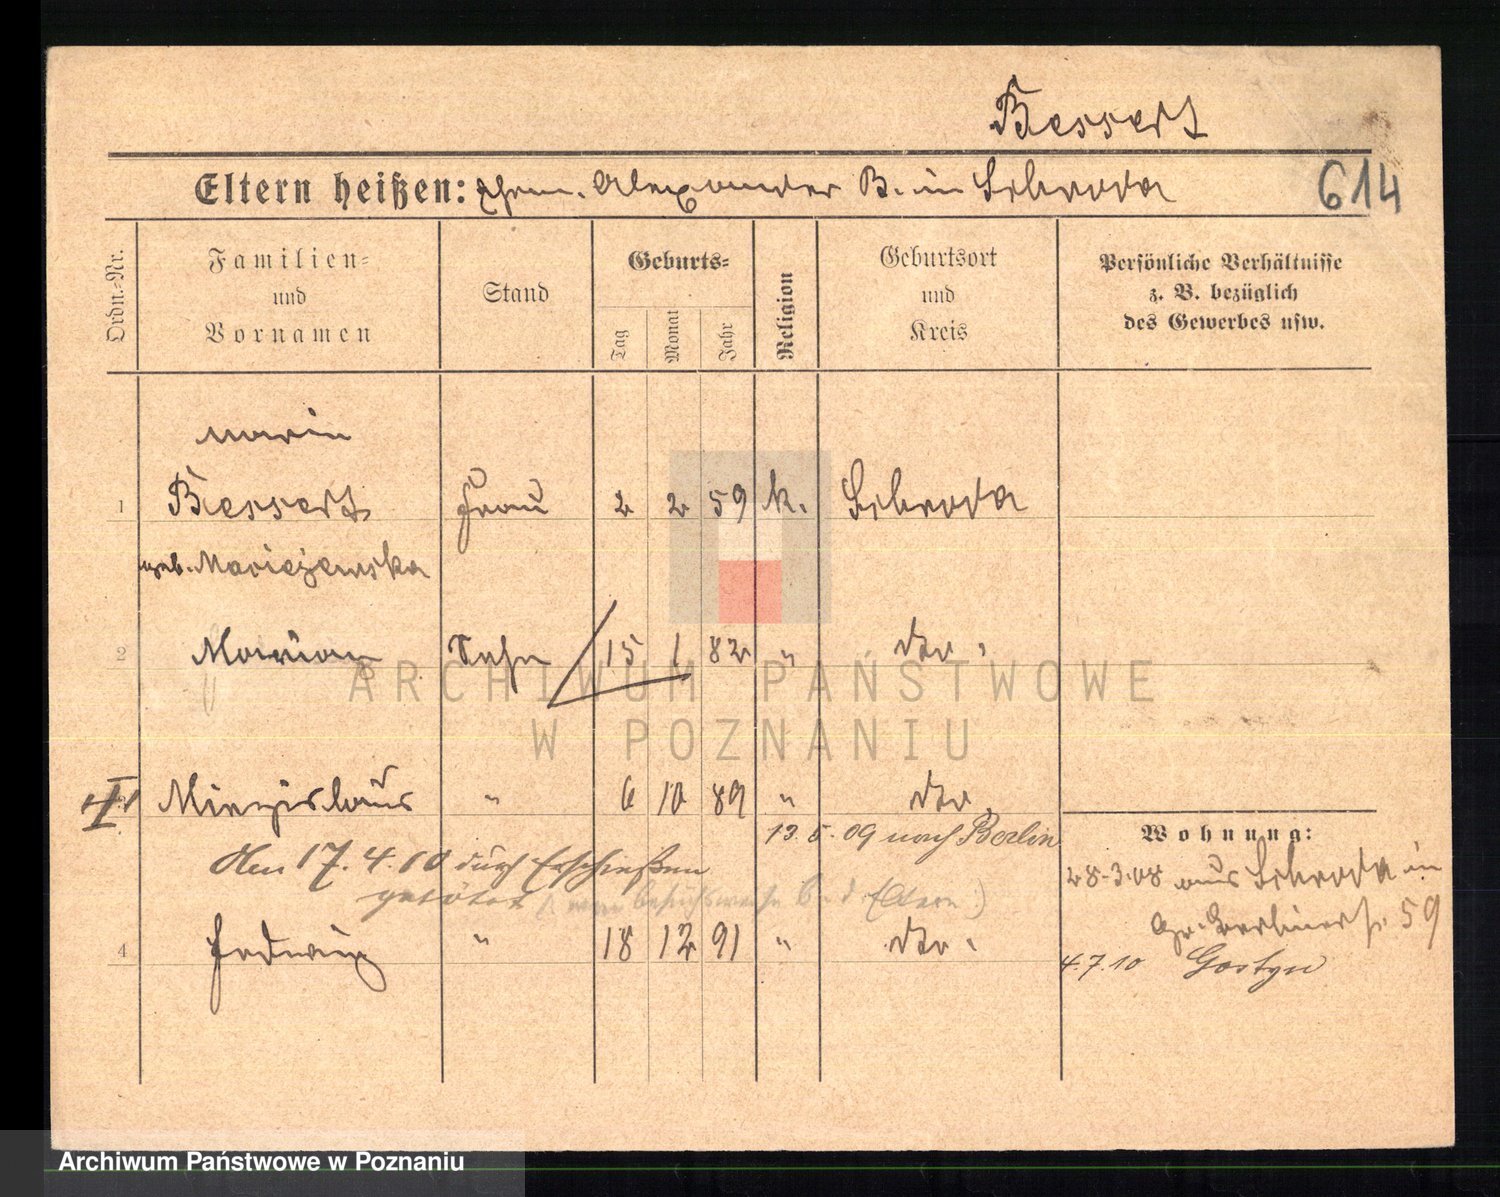 Bessert
Eltern heißen: Ehem. Alexander B. in Schroda
614
Ordn.-Nr.
Familien-
und
Vornamen
Stand
Geburts-
Tag
Monat
Jahr
Religion
Geburtsort
und
Kreis
Persönliche Verhältnisse
z. B. bezüglich
des Gewerbes usw.
Maria
1 Bessert Frau 2 2 59 k. Schroda
geb. Maciejewska
2 Marian Sohn 15 1 82 " dto.
Miecislaus " 6 10 89 " dto.
13. 5. 09 nach Berlin
Den 17. 4. 10 durch Erschießen
getötet
4 Hedwig " 18 12 91 " dto.
Wohnung:
28-3-08 aus Schroda in
Gr. Berlinerstr. 59
4.7.10 Gostyn
ARCHIWUM PAŃSTWOWE
W POZNANIU
Archiwum Państwowe w Poznaniu